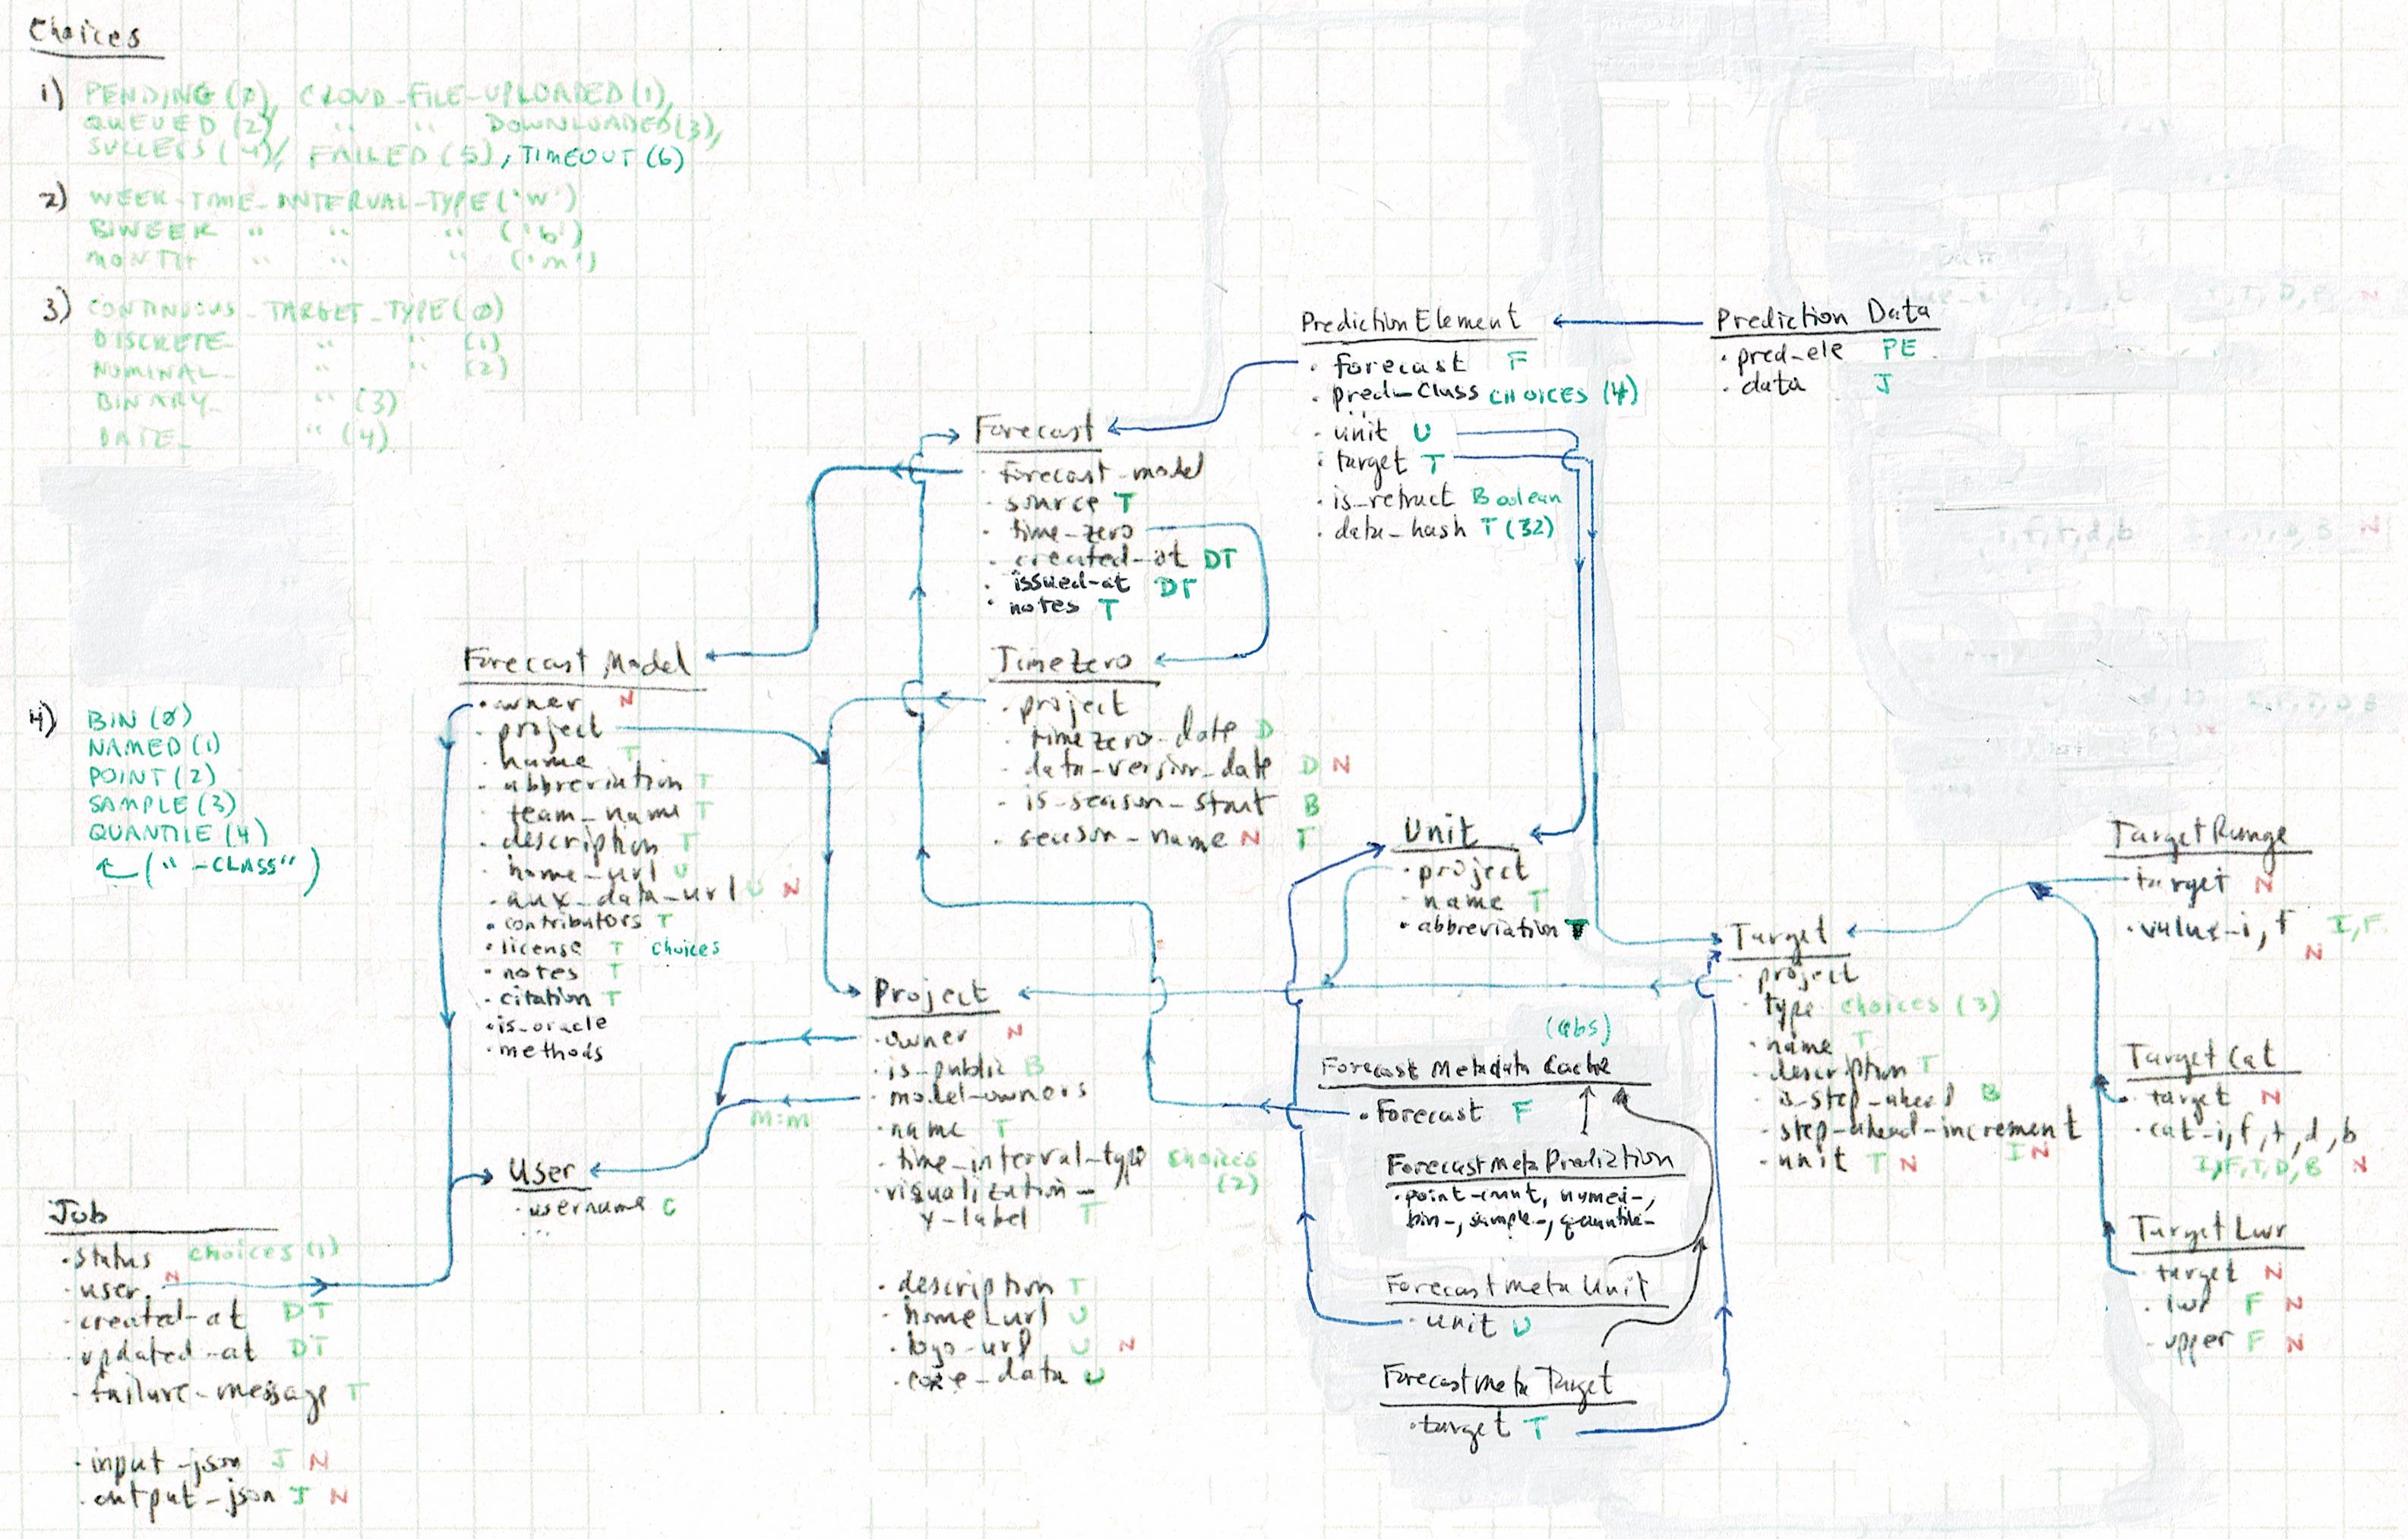 Choices
1) PENDING (0), CLOUD-FILE-UPLOADED (1),
QUEUED (2) " " DOWNLOADED (3),
SUCCESS (4), FAILED (5), TIMEOUT (6)
2) WEEK-TIME-INTERVAL-TYPE ('W')
BIWEEK " " " ('b')
MONTH " " " ('m')
3) CONTINUOUS_TARGET_TYPE (0)
DISCRETE_ " " (1)
NOMINAL_ " " (2)
BINARY_ " (3)
DATE_ " (4)
4) BIN (0)
NAMED (1)
POINT (2)
SAMPLE (3)
QUANTILE (4)
("-CLASS")
Prediction Element
· forecast F
· pred_class CHOICES (4)
· unit U
· target T
· is_retract Boolean
· data_hash T (32)
Prediction Data
· pred_ele PE
· data J
Forecast
· forecast_model
· source T
· time_zero
· created_at DT
· issued_at DT
· notes T
Forecast Model
· owner N
· project
· name T
· abbreviation T
· team_name T
· description T
· home_url U
· aux_data_url U N
· contributors T
· license T choices
· notes T
· citation T
· is_oracle
· methods
TimeZero
· project
· timezero_date D
· data_version_date D N
· is_season_start B
· season_name N T
Unit
· project
· name T
· abbreviation T
Project
· owner N
· is_public B
· model_owners
M:M
· name T
· time_interval_type choices (2)
· visualization_
y-label T
· description T
· home_url U
· logo_url U N
· core_data U
User
· username C
...
Job
· status choices (1)
· user N
· created_at DT
· updated_at DT
· failure_message T
· input_json J N
· output_json J N
(abs)
Forecast Metadata Cache
· Forecast F
Forecast Meta Prediction
· point_count, named_,
bin_, sample_, quantile_
Forecast Meta Unit
· unit U
Forecast Meta Target
· target T
Target
· project
· type choices (3)
· name T
· description T
· is_step_ahead B
· step_ahead_increment
IN
· unit T N
Target Range
· target N
· value_i, f I, F
N
Target Cat
· target N
· cat_i, f, t, d, b
I, F, T, D, B N
Target Lwr
· target N
· lwr F N
· upper F N